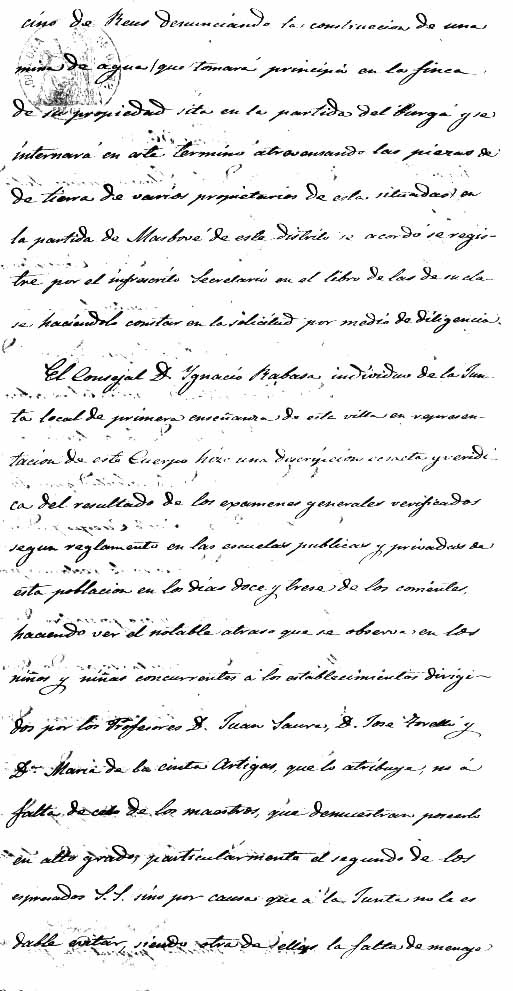 cino de Reus denunciando la construccion de una
mina de agua (que tomará principio en la finca
de su propiedad sita en la partida del Burgá y se
internará en este termino atravensando las piezas de
de tierra de varios propietarios de esta situadas) en
la partida de Masbové de este distrito se acordó se regis-
tre por el infrascrito Secretario en el libro de las de su cla-
se haciéndolo constar en la solicitud por medio de diligencia.
El Consejal D. Ignacio Rabasa individuo de la Jun-
ta local de primera enseñanza de esta villa en represen-
tacion de este Cuerpo hizo una descripcion ecsacta y veridi-
ca del resultado de los examenes generales verificados
segun reglamento en las escuelas publicas y privadas de
esta poblacion en los dias doce y trese de los corrientes,
haciendo ver el notable atraso que se observa en los
niños y niñas concurrentes á los establecimientos dirigi-
dos por los Profesores D. Juan Saura, D. José y
Dª Maria de la cinta Artigas, que lo atribuye, no á
falta de celo de los maestros, que demuestran poseerlo
en alto grado, particularmente el segundo de los
espresados S.S. sino por causa que á la Junta no le es
dable evitar, siendo otra de ellas la falta de menaje